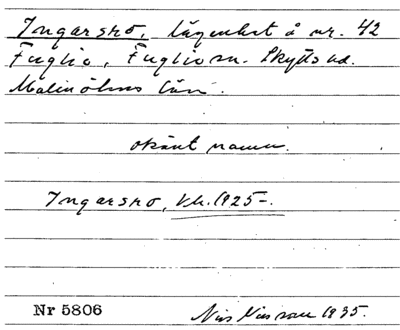 Ingarsro, lägenhet å nr. 42
Fuglie, Fuglie sn. Skytts hd.
Malmöhus län.
okänt namn.
Ingarsro, Kb. 1925-.
Nr 5806
Nils Nilsson 1935.